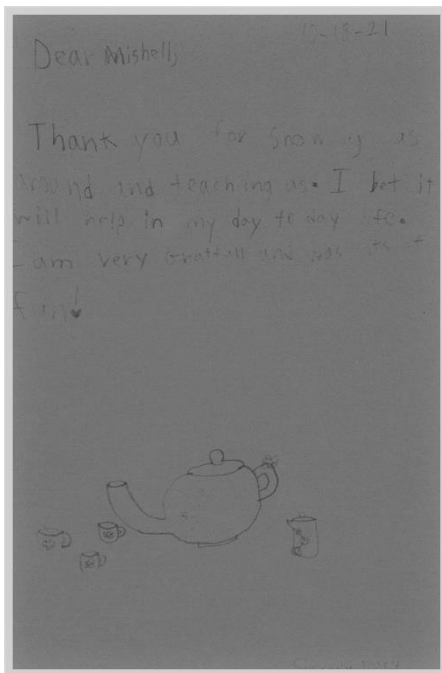 10-18-21
Dear Mishell,
Thank you for showing us
around and teaching us. I bet it
will help in my day to day life.
I am very gratfull and was
fun!